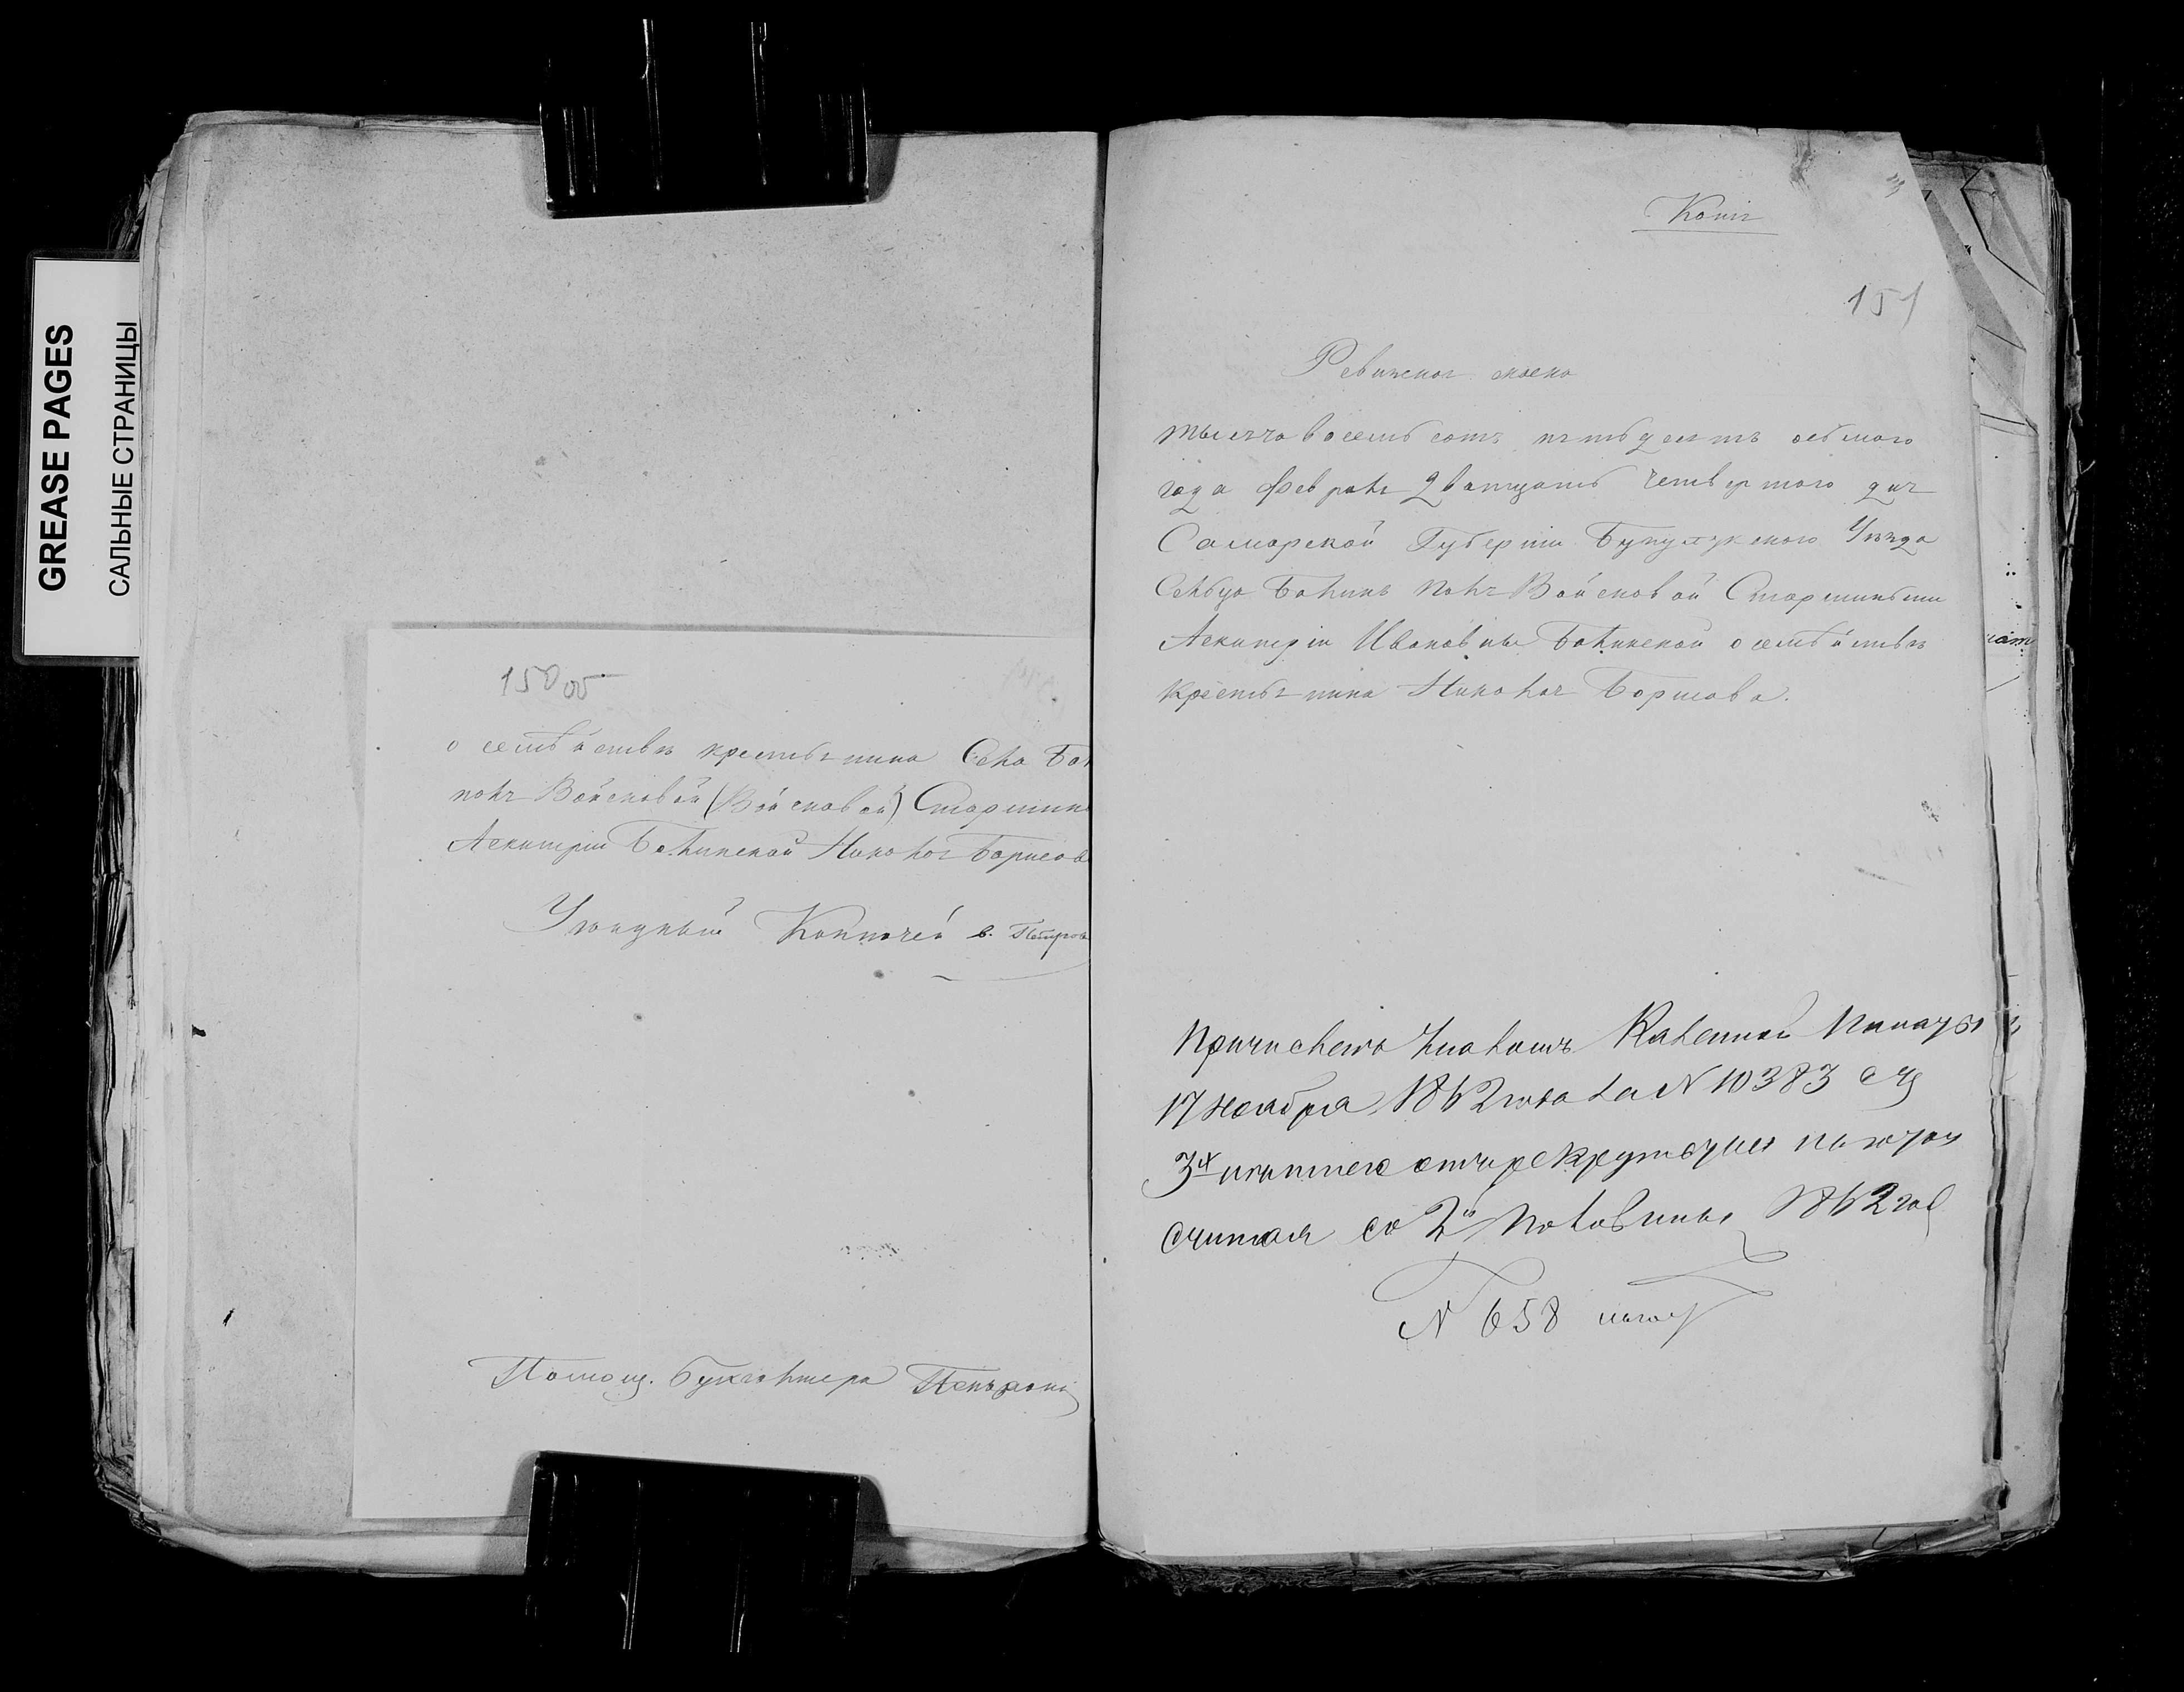 GREASE PAGES
САЛЬНЫЕ СТРАНИЦЫ
150 об
о семѣйствѣ крестьянина Села Бал
поля Войсковой (Войсковой) Старшин
Аскитріи Балинской Николая Борисов
Уѣздный Казначей в. Петров
Помощ. Бухгалтера
Копія
151
Ревижская сказка
тысяча восемьсотъ пятьдесятъ осьмого
года Февраля двадцать четвертого дня
Самарской Губерніи Бузулукского Уѣзда
Сельца Балинъ поля Войсковой Старшиньши
Аскитріи Ивановны Балинской о семѣйствѣ
крестьянина Николая Борисова.
Причислено Указомъ Казенной Палаты
17 Ноября 1862 года за N 10383 съ
3х отъ рекрутскои
считая со 2й половины 1862 год
N 658